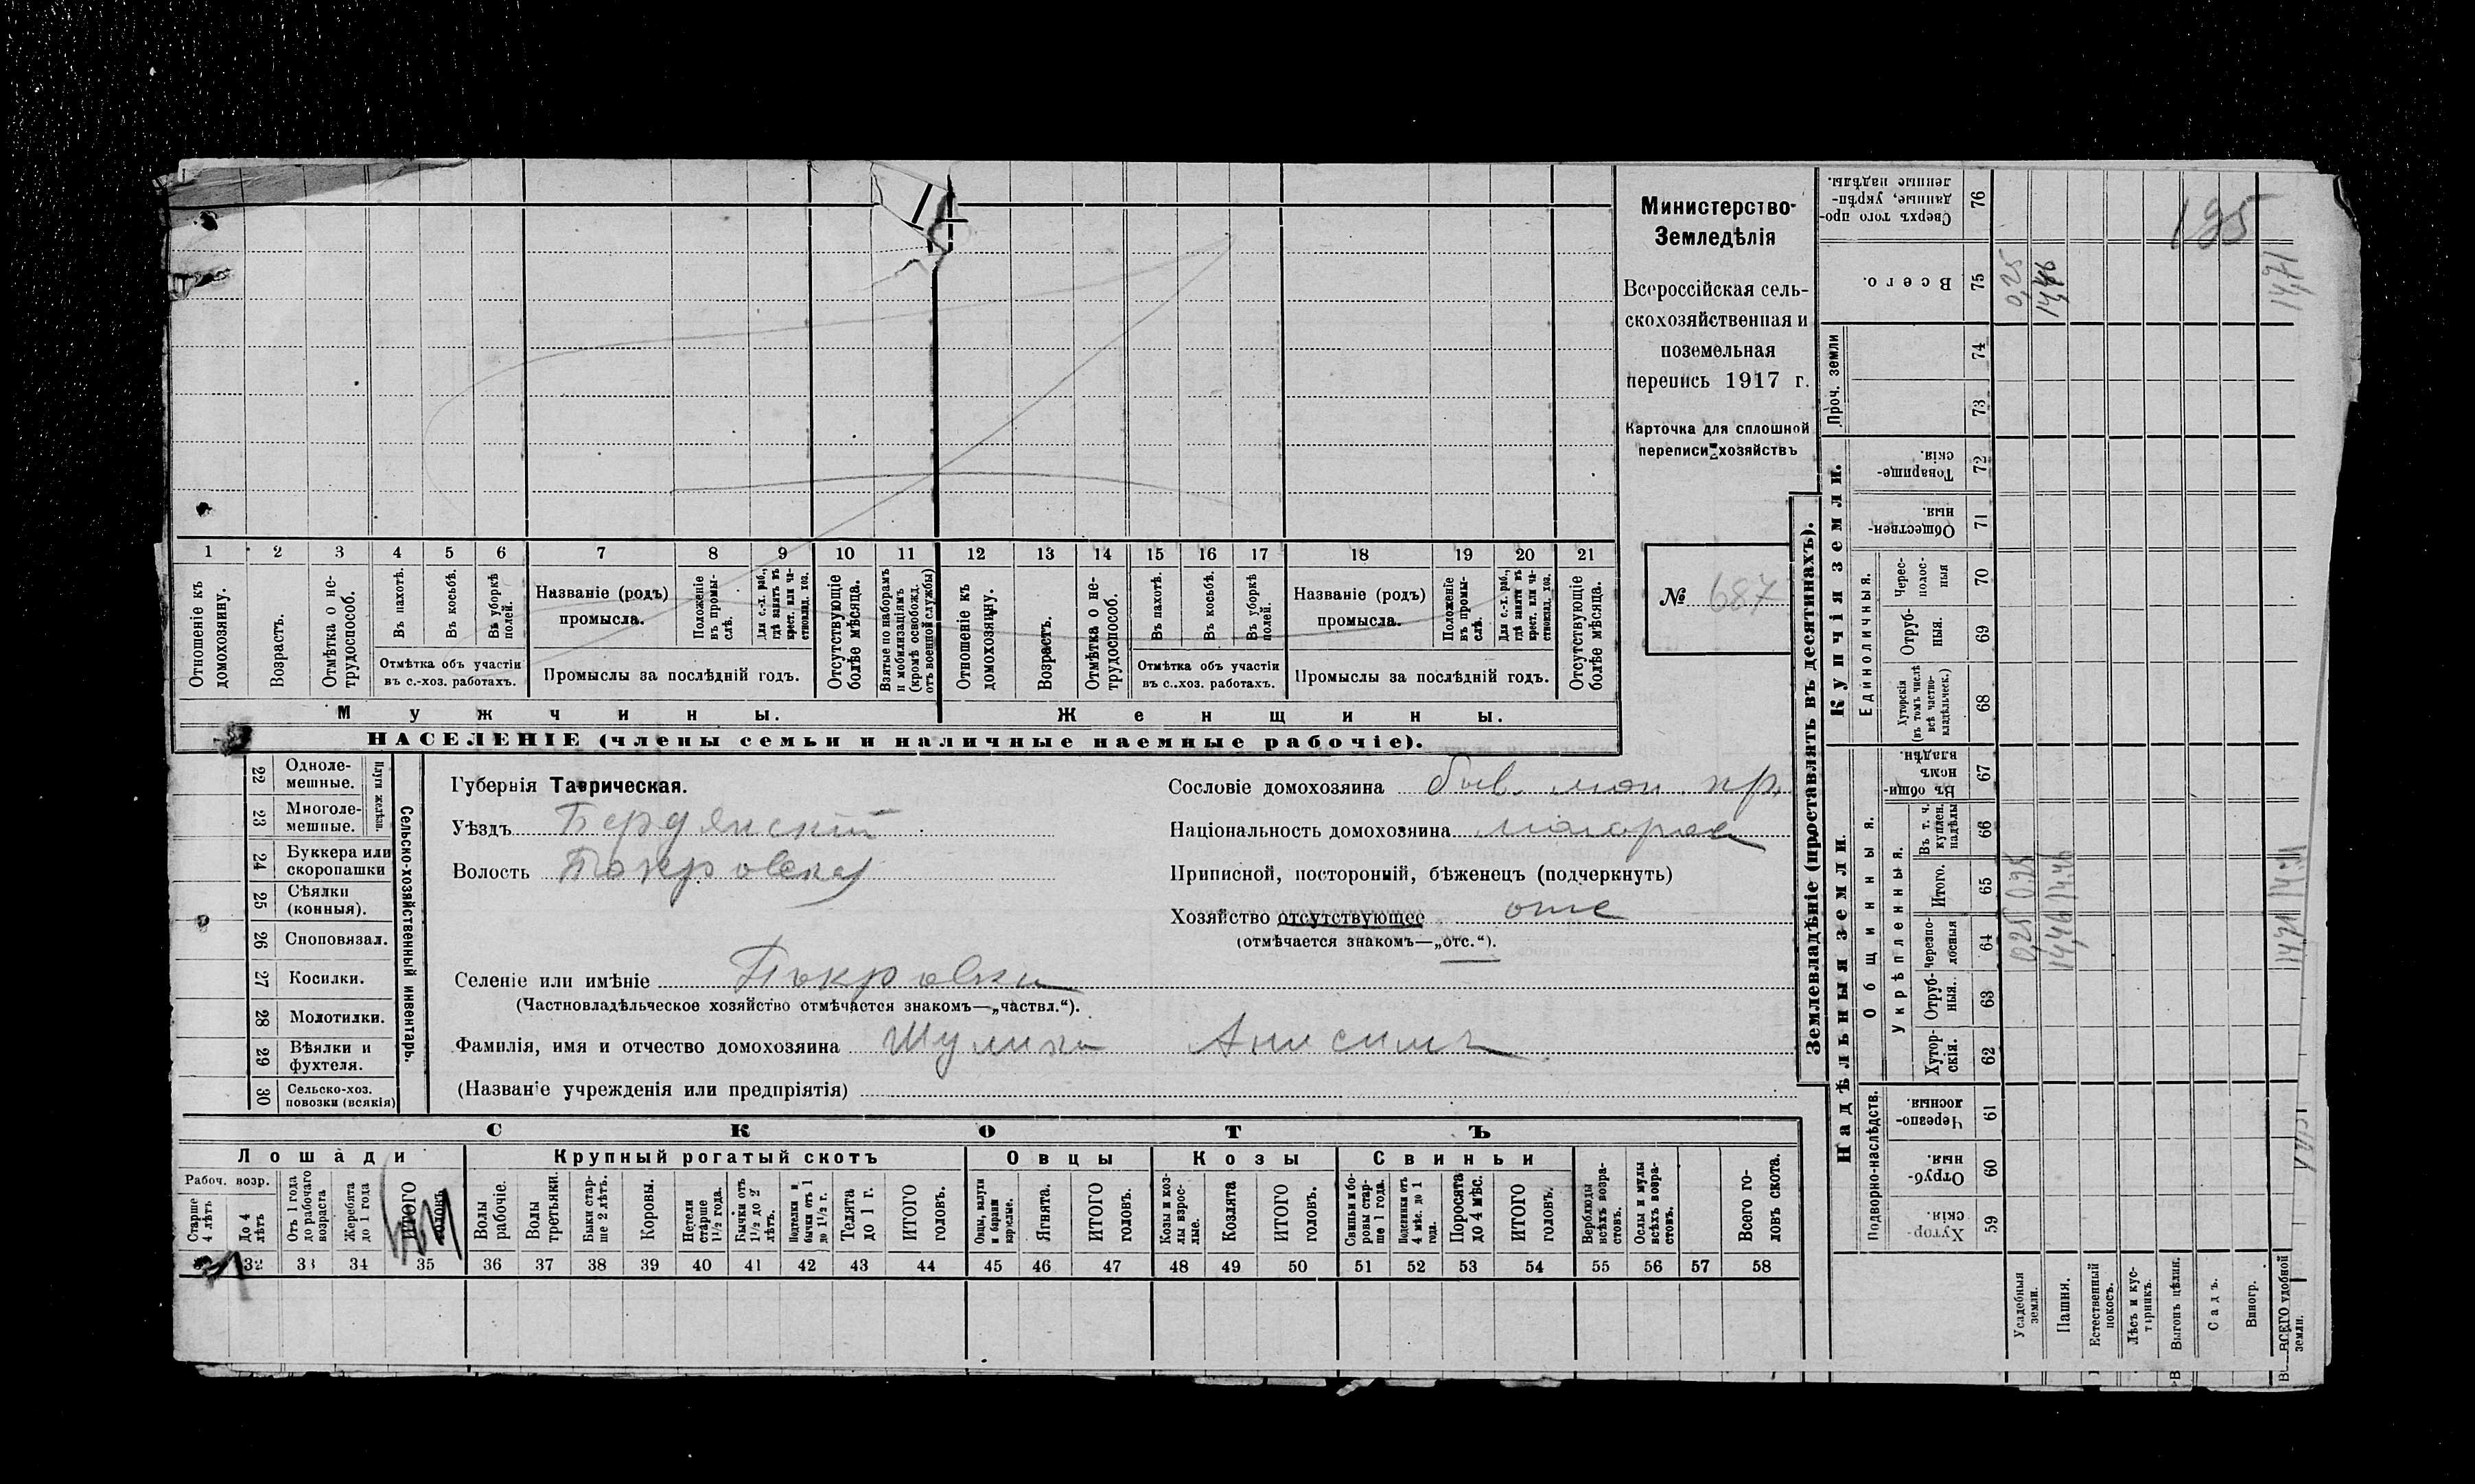 Министерство
Земледѣлія
Всероссійская сель-
скохозяйственная и
поземельная
перепись 1917 г.
Карточка для сплошной
переписи хозяйствъ
№ 687
1 2 3 4 5 6 7 8 9 10 11 12 13 14 15 16 17 18 19 20 21
Отношеніе къ домохозяину.
Возрастъ.
Отмѣтка о не-трудоспособ.
Въ пахотѣ.
Въ косьбѣ.
Въ уборкѣ полей.
Отмѣтка объ участіи въ с.-хоз. работахъ.
Названіе (родъ) промысла.
Положеніе въ промы-слѣ.
Для с.-х. раб., гдѣ занятъ въ крест. или ча-стновлад. хоз.
Промыслы за послѣдній годъ.
Отсутствующіе болѣе мѣсяца.
Взятые по наборамъ и мобилизаціямъ (кромѣ освобожд. отъ военной службы)
Отношеніе къ домохозяину.
Возрастъ.
Отмѣтка о не-трудоспособ.
Въ пахотѣ.
Въ косьбѣ.
Въ уборкѣ полей.
Отмѣтка объ участіи въ с.-хоз. работахъ.
Названіе (родъ) промысла.
Положеніе въ промы-слѣ.
Для с.-х. раб., гдѣ заняты въ крест. или ча-стновлад. хоз.
Промыслы за послѣдній годъ.
Отсутствующіе болѣе мѣсяца.
Мужчины.
Женщины.
НАСЕЛЕНІЕ (члены семьи и наличные наемные рабочіе).
22 Одноле-мешные.
23 Многоле-мешные.
Плуги желѣзн.
24 Буккера или скоропашки
25 Сѣялки (конныя).
26 Сноповязал.
27 Косилки.
28 Молотилки.
29 Вѣялки и фухтеля.
30 Сельско-хоз. повозки (всякія)
Сельско-хозяйственный инвентарь.
Губернія Таврическая.
Уѣздъ Бердянскій
Волость Покровская
Сословіе домохозяина быв.
Національность домохозяина малорос
Приписной, посторонній, бѣженецъ (подчеркнуть)
Хозяйство отсутствующее отс
(отмѣчается знакомъ—„отс.“).
Селеніе или имѣніе Покровка
(Частновладѣльческое хозяйство отмѣчается знакомъ—„частвл.“).
Фамилія, имя и отчество домохозяина Шулика Анисимъ
(Названіе учрежденія или предпріятія)
СКОТЪ
Лошади
Крупный рогатый скотъ
Овцы
Козы
Свиньи
Рабоч. возр.
Старше 4 лѣтъ
До 4 лѣтъ
Отъ 1 года до рабочаго возраста
Жеребята до 1 года
ИТОГО головъ.
Волы рабочіе.
Волы третьяки.
Быки стар-ше 2 лѣтъ.
Коровы.
Нетели старше 1½ года.
Бычки отъ 1½ до 2 лѣтъ.
Подтелки и бычки отъ 1 до 1½ г.
Телята до 1 г.
ИТОГО головъ.
Овцы, валухи и бараны взрослые.
Ягнята.
ИТОГО головъ.
Козы и коз-лы взрос-лые.
Козлята
ИТОГО головъ.
Свиньи и бо-ровы стар-ше 1 года.
Подсвинки отъ 4 мѣс. до 1 года.
Поросята до 4 мѣс.
ИТОГО головъ.
Верблюды всѣхъ возра-стовъ.
Ослы и мулы всѣхъ возра-стовъ.
Всего го-ловъ скота.
32 33 34 35 36 37 38 39 40 41 42 43 44 45 46 47 48 49 50 51 52 53 54 55 56 57 58
Землевладѣніе (проставлять въ десятинахъ).
Надѣльныя земли.
Купчія земли.
Проч. земли
Подворно-наслѣдств.
Общинныя.
Укрѣпленныя.
Единоличныя.
Сверхъ того про-данные, укрѣп-ленные надѣлы. 76
Всего. 75 0,25 14,46 14,71
74
73
Товарище-скія. 72
Обществен-ныя. 71
Черес-полос-ныя 70
Отруб-ныя. 69
Хуторскія (въ томъ числѣ всѣ частно-владѣльческ.) 68
Въ общин-номъ владѣн. 67
Въ т. ч. куплен. надѣлы 66
Итого. 65 0,25 14,46 14,71
Черезпо-лосныя 64 0,25 14,46 14,71
Отруб-ныя. 63
Хутор-скія. 62
Черезпо-лосныя. 61
Отруб-ныя. 60
Хутор-скія. 59
Усадебныя земли.
Пашня.
Естественный покосъ.
Лѣсъ и кус-тарникъ.
Выгонъ цѣлин.
Садъ.
Виногр.
ВСЕГО удобной земли.
195